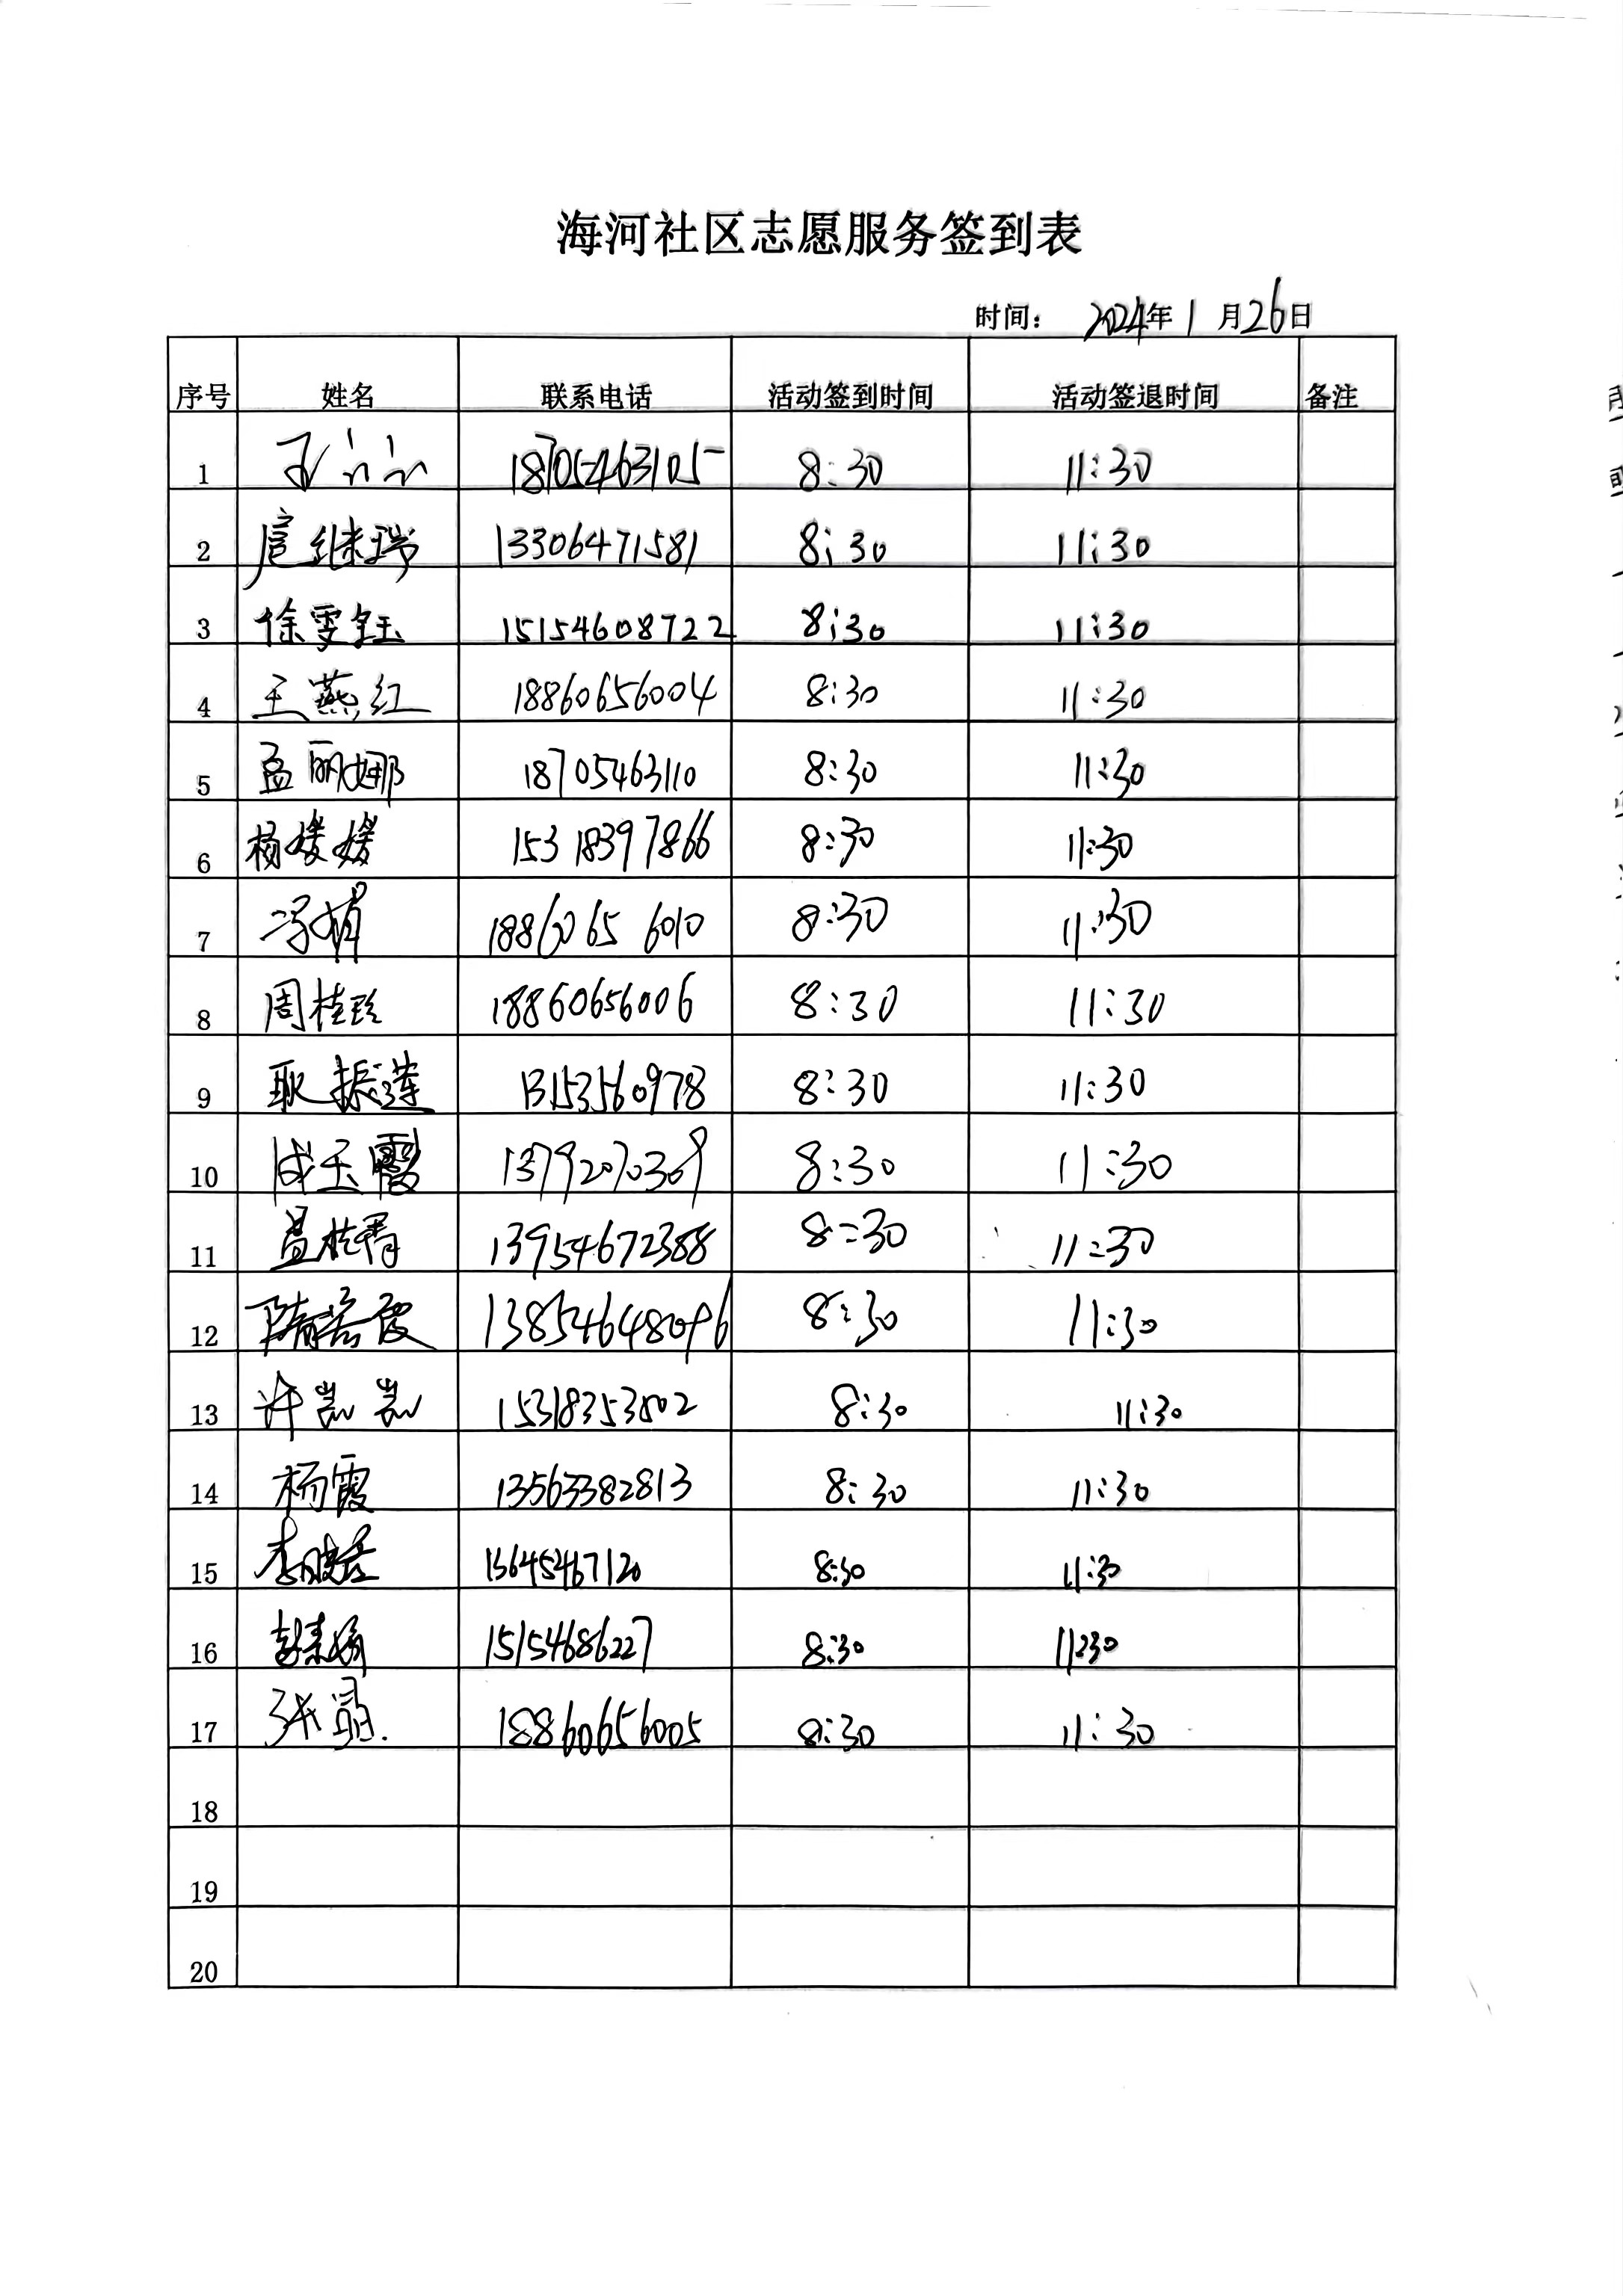 海河社区志愿服务签到表
时间： 2024年 1 月26日
序号 姓名 联系电话 活动签到时间 活动签退时间 备注
1 18705463105 8:30 11:30
2 扈继瑞 13306471581 8:30 11:30
3 徐雯钰 15154608722 8:30 11:30
4 王燕红 18860656004 8:30 11:30
5 孟丽娜 18705463110 8:30 11:30
6 杨媛媛 15318397866 8:30 11:30
7 冯 18860656010 8:30 11:30
8 周桂珍 18860656006 8:30 11:30
9 耿振莲 13153560978 8:30 11:30
10 成玉霞 13792070309 8:30 11:30
11 13954672388 8:30 11:30
12 隋 霞 13854648096 8:30 11:30
13 许凯凯 15318353802 8:30 11:30
14 杨霞 13563382813 8:30 11:30
15 李 13645467120 8:30 11:30
16 15154686227 8:30 11:30
17 张 18860656005 8:30 11:30
18
19
20